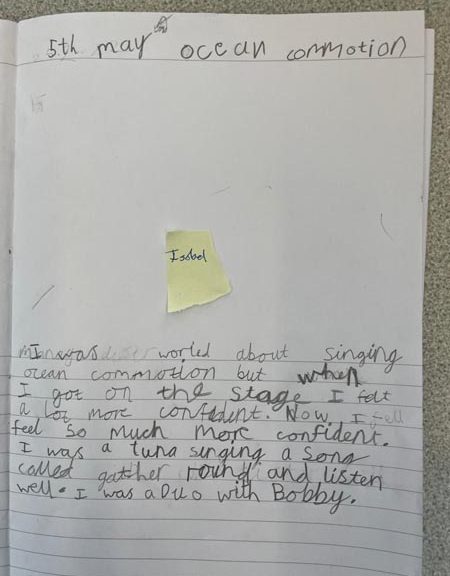 5th may ocean commotion
Isobel
I was worled about singing
ocean commotion but when
I got on the stage I felt
a lot more confident. Now I fell
feel so much more confident.
I was a tuna singing a song
called gather round and listen
well. I was a Duo with Bobby.